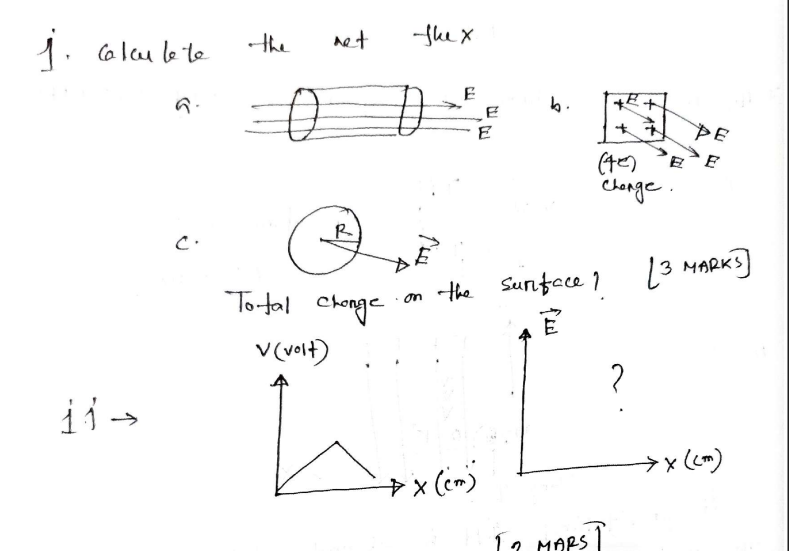 i. Calculete the net flux
a. E
E
E
b. + E +
+ +
E
E E
(4e)
charge.
c. R
E
Total charge on the surface? [3 MARKS]
V(volt)
E
?
ii →
X (cm)
X (cm)
[2 MARS]